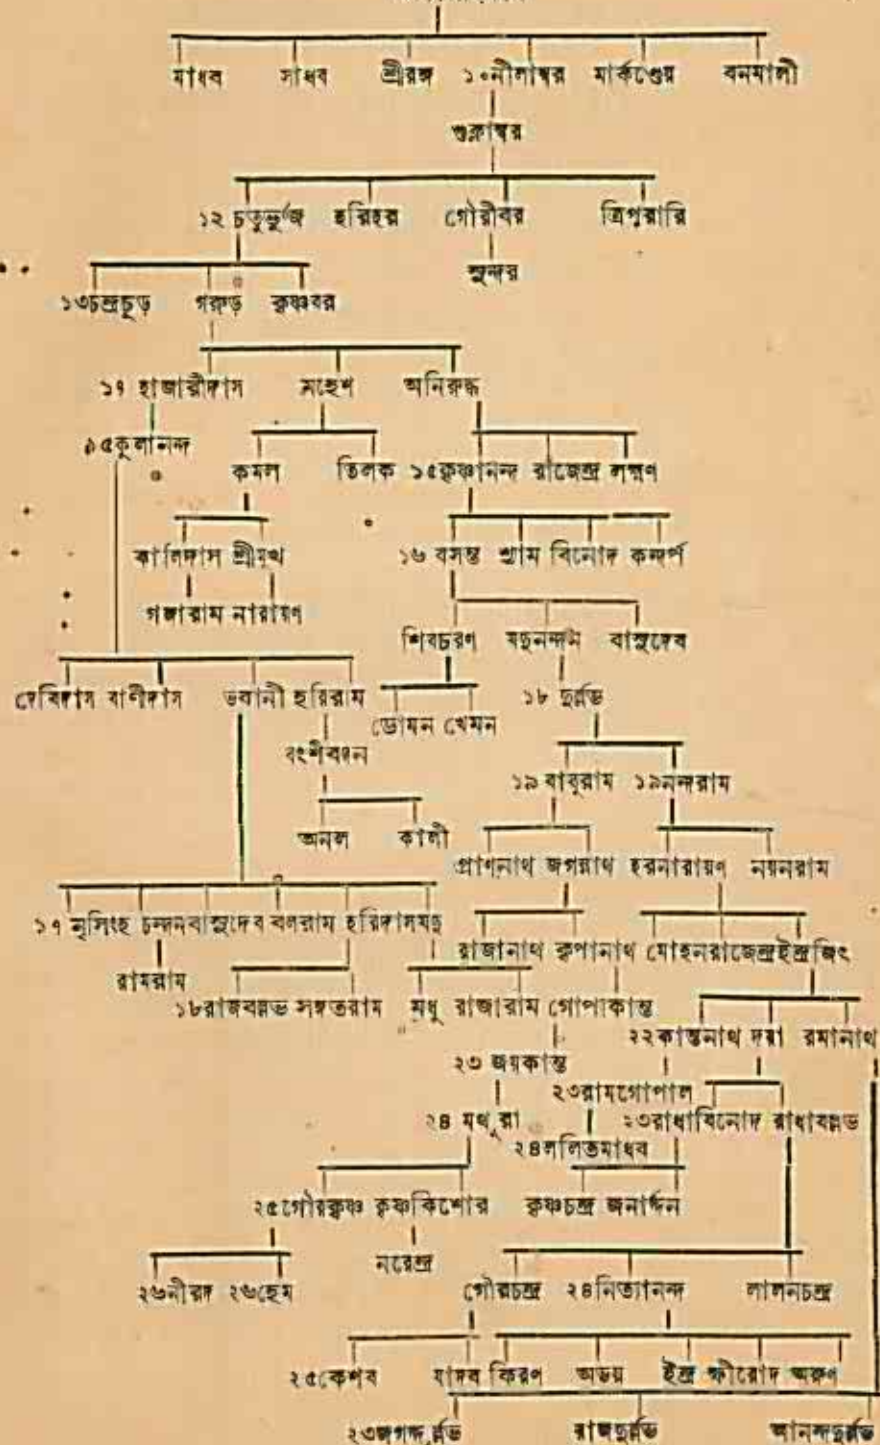 মাধব সাধব শ্রীরঙ্গ ১০নীলাম্বর মার্কণ্ডেয় বনমালী
শুক্লাম্বর
১২ চতুর্ভুজ হরিহর গৌরীবর ত্রিপুরারি
সুন্দর
১৩চন্দ্রচূড় গরুড় কৃষ্ণবর
১৭ হাজারীদাস মহেশ অনিরুদ্ধ
১৫কুলানন্দ
কমল তিলক ১৫কৃষ্ণানন্দ রাজেন্দ্র লক্ষ্মণ
কালিদাস শ্রীমুখ ১৬ বসন্ত শ্যাম বিনোদ কন্দর্প
গঙ্গারাম নারায়ণ
শিবচরণ যদুনন্দন বাসুদেব
দেবিদাস বাণীদাস ভবানী হরিরাম ডোমন খেমন ১৮ দুর্ল্লভ
বংশীবদন
১৯ বাবুরাম ১৯নন্দরাম
অনল কালী
প্রাণনাথ জগন্নাথ হরনারায়ণ নয়নরাম
১৭ নৃসিংহ চন্দনবাসুদেব বলরাম হরিদাসযদু
রাজানাথ কৃপানাথ মোহনরাজেন্দ্রইন্দ্রজিৎ
রামরাম
১৮রাজবল্লভ সঙ্গতরাম মধু রাজারাম গোপাকান্ত
২২কান্তনাথ দয়া রমানাথ
২৩ জয়কান্ত
২৩রামগোপাল
২৪ মথুরা ২৩রাধাবিনোদ রাধাবল্লভ
২৪ললিতমাধব
২৫গৌরকৃষ্ণ কৃষ্ণকিশোর কৃষ্ণচন্দ্র জনার্দ্দন
নরেন্দ্র
২৬নীরদ ২৬হেম গৌরচন্দ্র ২৪নিত্যানন্দ লালনচন্দ্র
২৫কেশব যাদব কিরণ অভয় ইন্দ্র ক্ষীরোদ অরুণ
২৩জগদ্দুর্ল্লভ রাজদুর্ল্লভ আনন্দদুর্ল্লভ